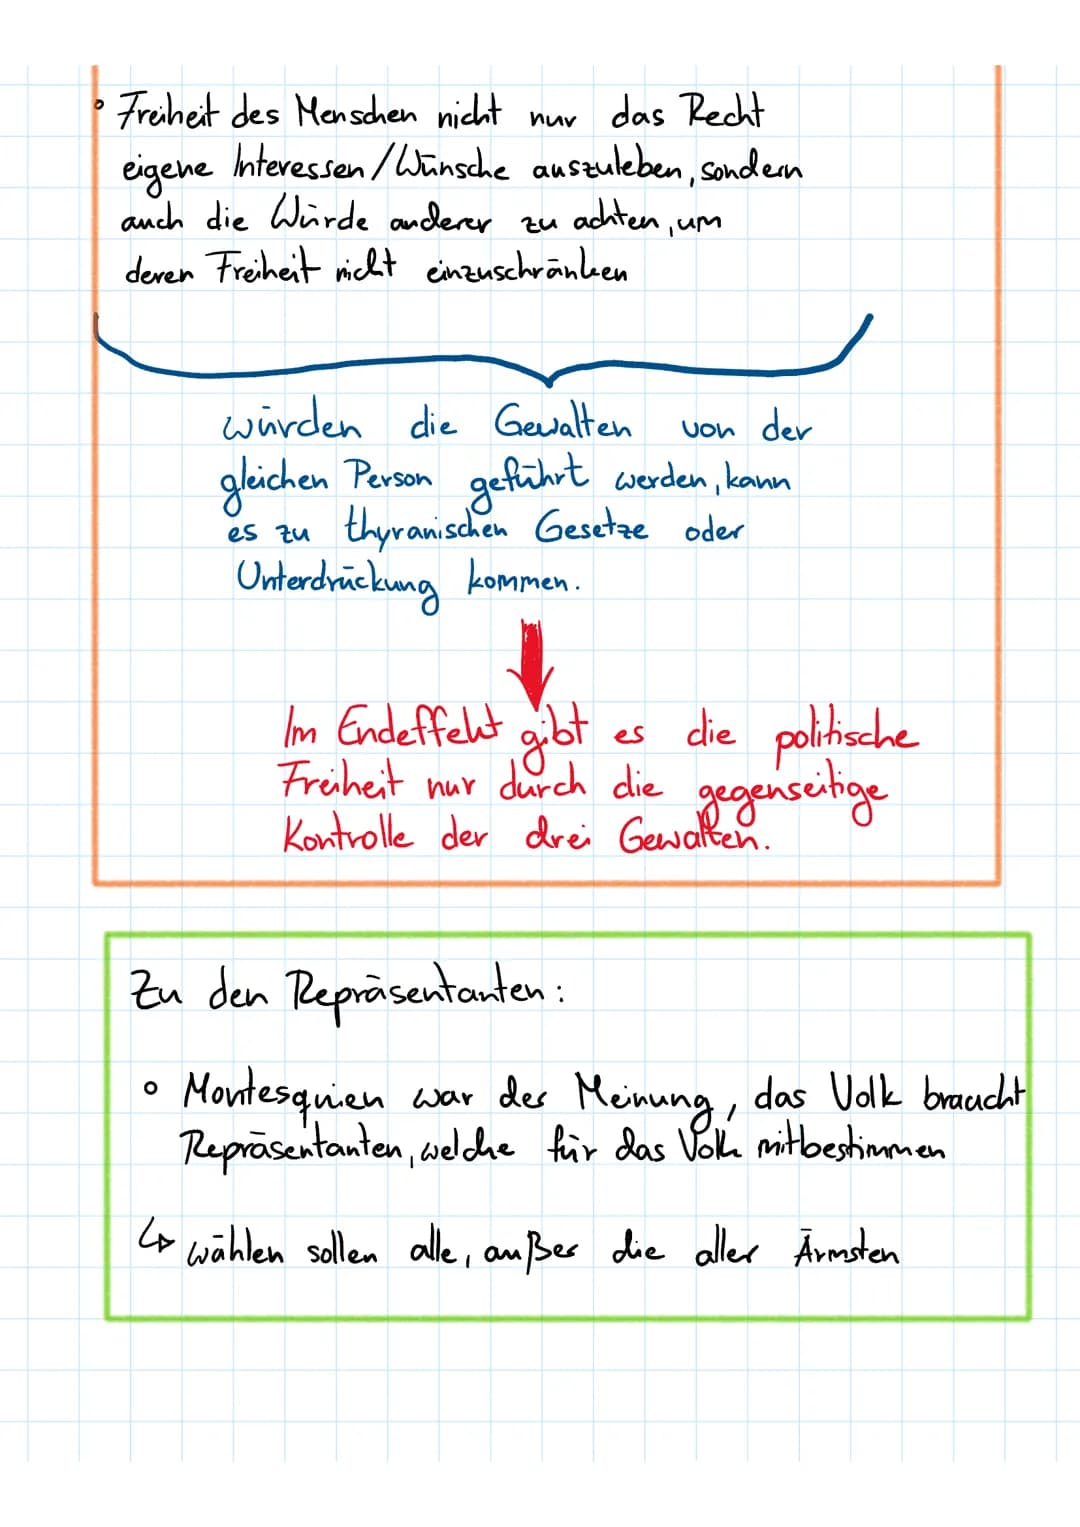 ° Freiheit des Menschen nicht nur das Recht
eigene Interessen/Wünsche auszuleben, sondern
auch die Würde anderer zu achten, um
deren Freiheit nicht einzuschränken
würden die Gewalten von der
gleichen Person geführt werden, kann
es zu thyranischen Gesetze oder
Unterdrückung kommen.
Im Endeffekt gibt es die politische
Freiheit nur durch die gegenseitige
Kontrolle der drei Gewalten.
Zu den Repräsentanten:
° Montesquieu war der Meinung, das Volk braucht
Repräsentanten, welche für das Volk mitbestimmen
↳ wählen sollen alle, außer die aller Ärmsten